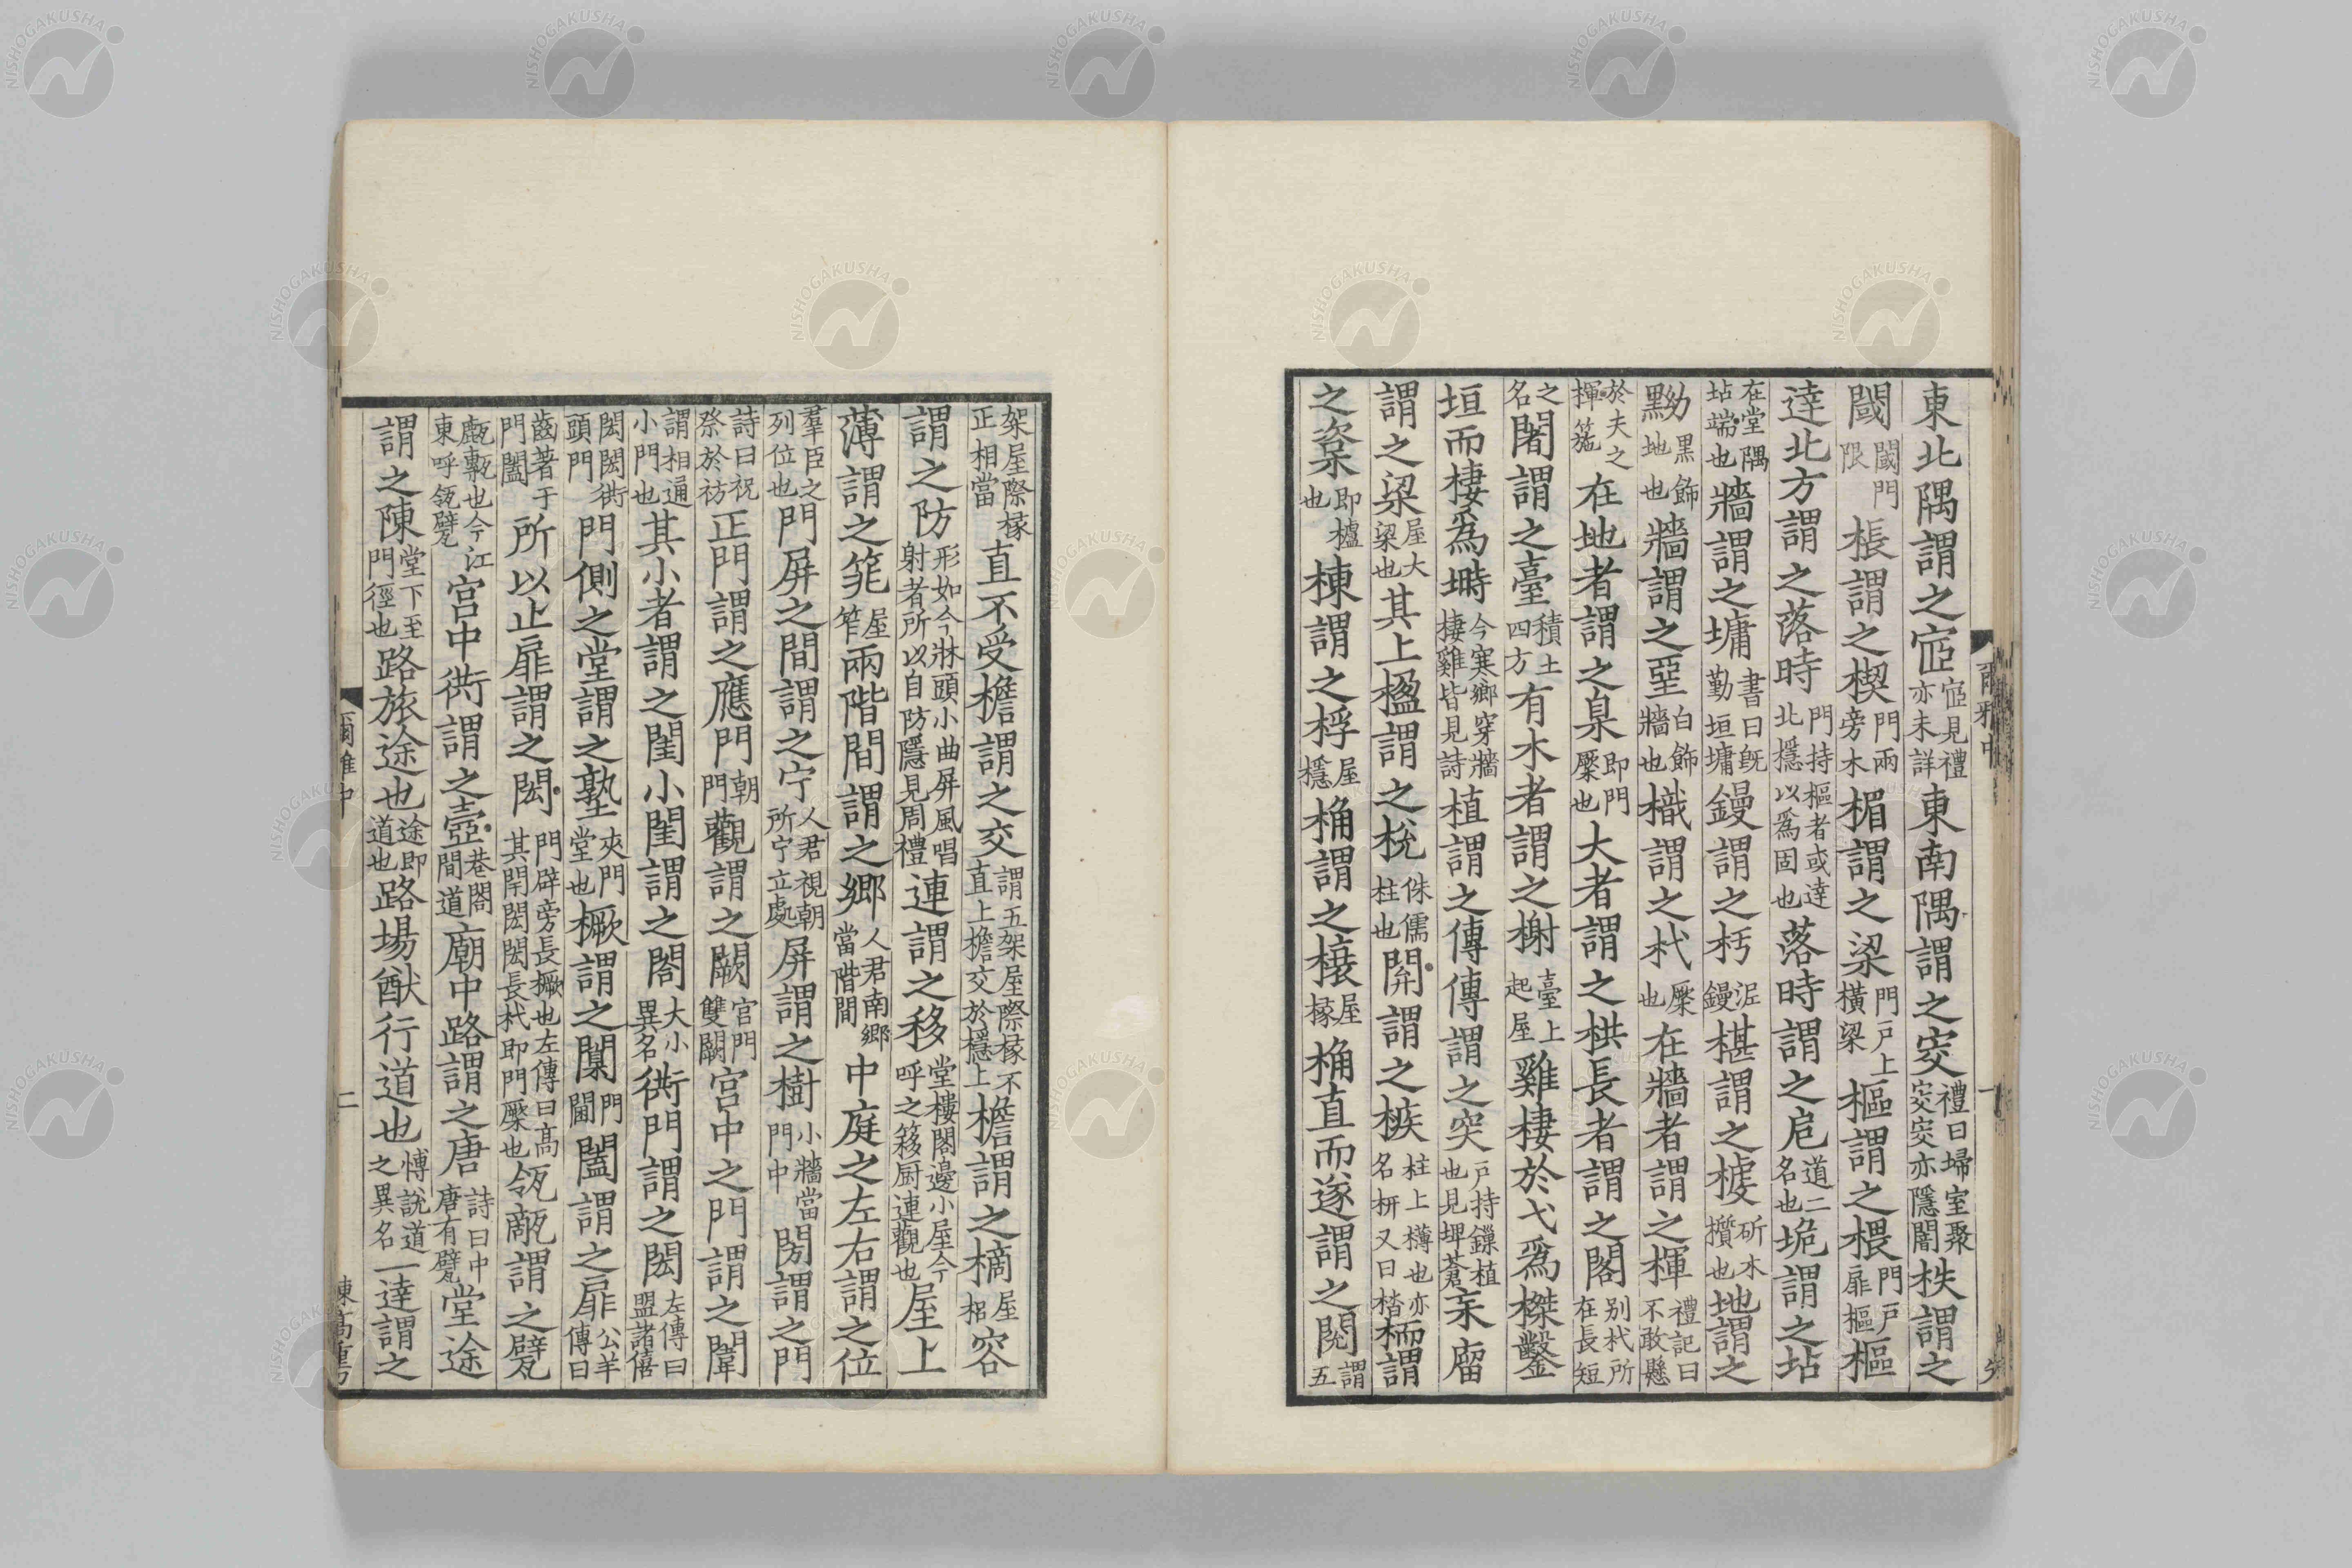 東北隅謂之宧宧見禮亦未詳東南隅謂之窔禮曰埽室聚窔窔亦隱闇柣謂之
閾閾門限棖謂之楔門兩旁木楣謂之梁門戶上橫梁樞謂之椳門戶扉樞樞
達北方謂之落時門持樞者或達北檼以爲固也落時謂之戹道二名也垝謂之坫
在堂隅坫端也牆謂之墉書曰旣勤垣墉鏝謂之杇泥鏝椹謂之榩斫木櫍也地謂之
黝黑飾地也牆謂之堊白飾牆也樴謂之杙橜也在牆者謂之楎禮記曰不敢懸
於夫之楎箷在地者謂之臬即門橜也大者謂之栱長者謂之閣別杙所在長短
之名闍謂之臺積土四方有木者謂之榭臺上起屋雞棲於弋爲榤鑿
垣而棲爲塒今寒鄉穿牆棲雞皆見詩植謂之傳傳謂之突戶持鏁植也見埤蒼杗廇
謂之梁屋大梁也其上楹謂之梲侏儒柱也開謂之槉柱上欂也亦名枅又曰楷栭謂
之楶即櫨也棟謂之桴屋檼桷謂之榱屋椽桷直而遂謂之閱謂五
爾雅中
架屋際椽正相當直不受檐謂之交謂五架屋際椽不直上檐交於檼上檐謂之樀屋梠容
謂之防形如今牀頭小曲屏風唱射者所以自防隱見周禮連謂之移堂樓閣邊小屋今呼之簃廚連觀也屋上
薄謂之筄屋笮兩階間謂之鄉人君南鄉當階間中庭之左右謂之位
羣臣之列位也門屏之間謂之宁人君視朝所宁立處屏謂之樹小牆當門中閍謂之門
詩曰祝祭於祊正門謂之應門朝門觀謂之闕官門雙闕宮中之門謂之闈
謂相通小門也其小者謂之閨小閨謂之閤大小異名衖門謂之閎左傳曰盟諸僖
閎閎衖頭門門側之堂謂之塾夾門堂也橛謂之闑門閫闔謂之扉公羊傳曰
齒著于門闔所以止扉謂之閎門辟旁長橛也左傳曰高其閈閎閎長杙即門橜也瓴甋謂之甓
㼾甎也今江東呼瓴甓宮中衖謂之壼巷閤間道廟中路謂之唐詩曰中唐有甓堂途
謂之陳堂下至門徑也路旅途也途即道也路場猷行道也博說道之異名一達謂之
爾雅中
二